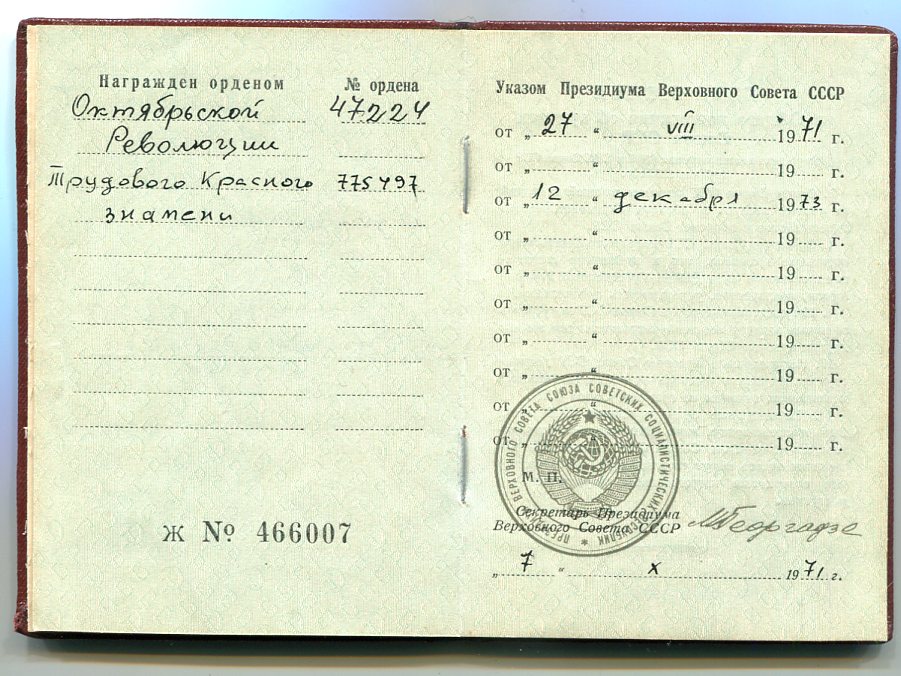 Награжден орденом № ордена
Октябрьской 47224
Революции
Трудового Красного 775497
знамени
Ж № 466007
Указом Президиума Верховного Совета СССР
от „ 27 “ VIII 1971 г.
от „ “ 19 г.
от „ 12 “ декабря 1973 г.
от „ “ 19 г.
от „ “ 19 г.
от „ “ 19 г.
от „ “ 19 г.
от „ “ 19 г.
от „ “ 19 г.
от „ “ 19 г.
ПРЕЗИДИУМ ВЕРХОВНОГО СОВЕТА СОЮЗА СОВЕТСКИХ СОЦИАЛИСТИЧЕСКИХ РЕСПУБЛИК
М. П.
Секретарь Президиума
Верховного Совета СССР МГеоргадзе
„ 7 “ X 1971 г.